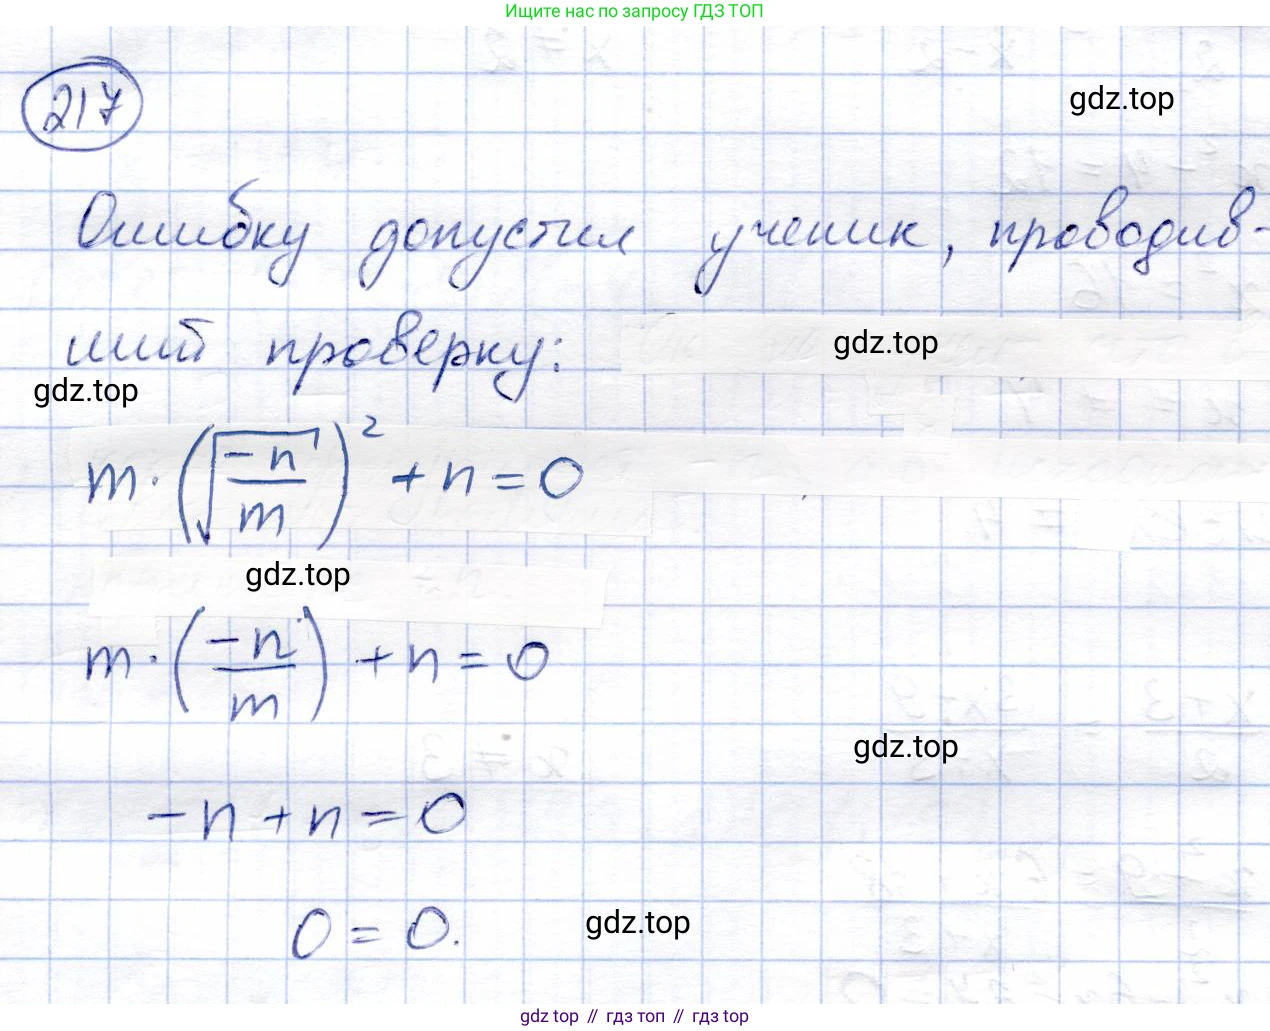 Ищите нас по запросу ГДЗ ТОП
217
gdz.top
Ошибку допустил ученик, проводив-
ший проверку:
gdz.top
gdz.top
m·(√(-n/m))² + n = 0
gdz.top
m·(-n/m) + n = 0
gdz.top
-n + n = 0
0 = 0.
gdz.top
gdz top // гдз топ // гдз top